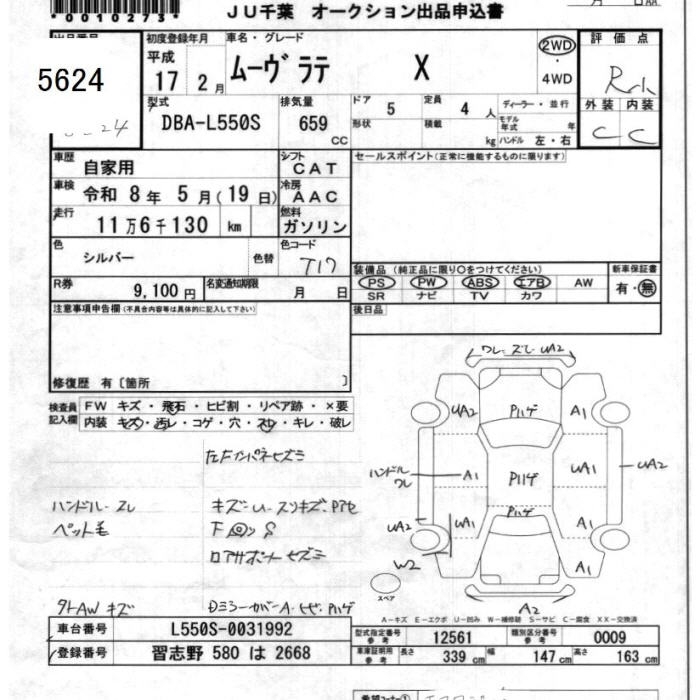 *0010273*
JU千葉 オークション出品申込書
5624
初度登録年月
平成
17 2月
車名・グレード
ムーヴ ラテ X
2WD
・
4WD
評価点
外装 内装
C C
型式
DBA-L550S
排気量
659 CC
ドア 5
定員 4 人
形状
積載 kg
ディーラー・並行
モデル年式 年
ハンドル 左・右
車歴
自家用
シフト
CAT
車検
令和 8年 5月(19日)
冷房
AAC
走行
11万6千130 km
燃料
ガソリン
色
シルバー
色替
色コード
T17
R券
9,100円
名変通知期限
月 日
セールスポイント(正常に機能するものに限ります)
装備品 (純正品に限り〇をつけてください)
PS PW ABS エアB AW
SR ナビ TV カワ
新車保証書
有・無
後日品
注意事項申告欄(不具合内容等は具体的に記入して下さい)
修復歴 有〔箇所 〕
検査員
記入欄
FW キズ・飛石・ヒビ割・リペア跡・×要
内装 キズ・汚レ・コゲ・穴・スレ・キレ・破レ
ワレ・ズレ・UA2
UA2 Pハゲ A1
ハンドル
ワレ
A1 Pハゲ UA1 UA2
UA2 UA1 Pハゲ A1
W2 A1
スペア
A2
ハンドルスレ
ペット毛
ロアサポートキズミ
外AWキズ
A-キズ E-エクボ U-凹み W-補修跡 S-サビ C-腐食 XX-交換済
車台番号 L550S-0031992
登録番号 習志野 580 は 2668
型式指定番号
参考
12561
類別区分番号
参考
0009
車庫証明用
参考
長さ 339 cm
幅 147 cm
高さ 163 cm